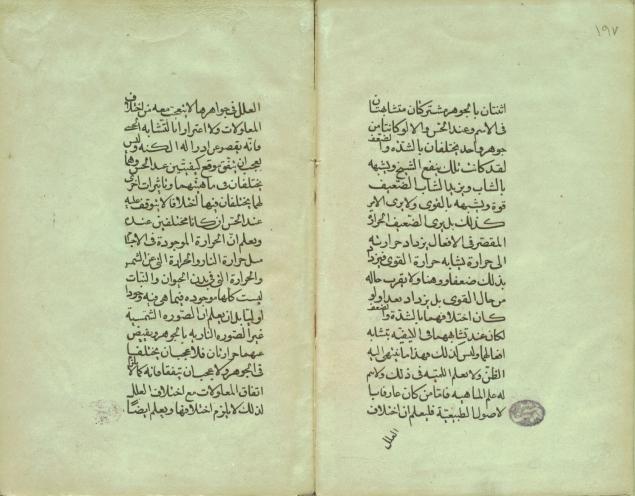 ١٩٧
اثنتان بالجوهر مشتركتان متشابهتان
في الاسم وعند الحس والا لو كانتا من
جوهر واحد يختلفان بالشدة والضعف
لقد كانت تلك ينفع الشيخ ويشبهه
بالشاب ويزيد الشاب الضعيف
قوة ويشبهه بالقوي ولا يرى الامر
كذلك بل يرى الضعيف الحرارة
المقصر في الافعال يزداد حرارته
الى حرارة يشابه حرارة القوي فيزداد
بذلك ضعفا ووهنا ولا يقرب حاله
من حال القوي بل يزداد بعدا ولو
كان اختلافهما بالشدة والضعف
لكان عند تشابههما في الكيفية يتشابه
افعالهما وليس كذلك فهذا ما ينتهى اليه
الظن ولا يعلم اللمية في ذلك ولا يتم
له علم الماهية فاما من كان عارفا با
لاصول الطبيعية فليعلم ان اختلاف
العلل
العلل في جواهرها لا ينبعث معه من اختلاف
المعلولات ولا اعترارا بالتشابه الحسي
فانه يقصر عن ادراك الكنه وليس
بعجب ان يتفق وقع كيفيتين عند الحس وهما
يختلفان في ماهيتهما وتاثيرات اخرى
لهما يختلفان فيها اختلافا لا يتوقف عليه
عند الحس ان كانا مختلفين عنده
ويعلم ان الحرارة الموجودة في الاشياء
مثل حرارة النار والحرارة التي عن الشمس
والحرارة التي في بدن الحيوان والنبات
ليست كلها موجودة فيما هي فيه وجودا
اوليا بل ان يعلم ان الصورة الشمسية
غير الصورة النارية بالجوهر ويفيض
عنهما حرارتان فلا عجب ان يختلفا
في الجوهر ولا عجب ان يتفقا فانه كما لا يلزم
اتفاق المعلولات مع اختلاف العلل
لذلك لا يلزم اختلافها ويعلم ايضا